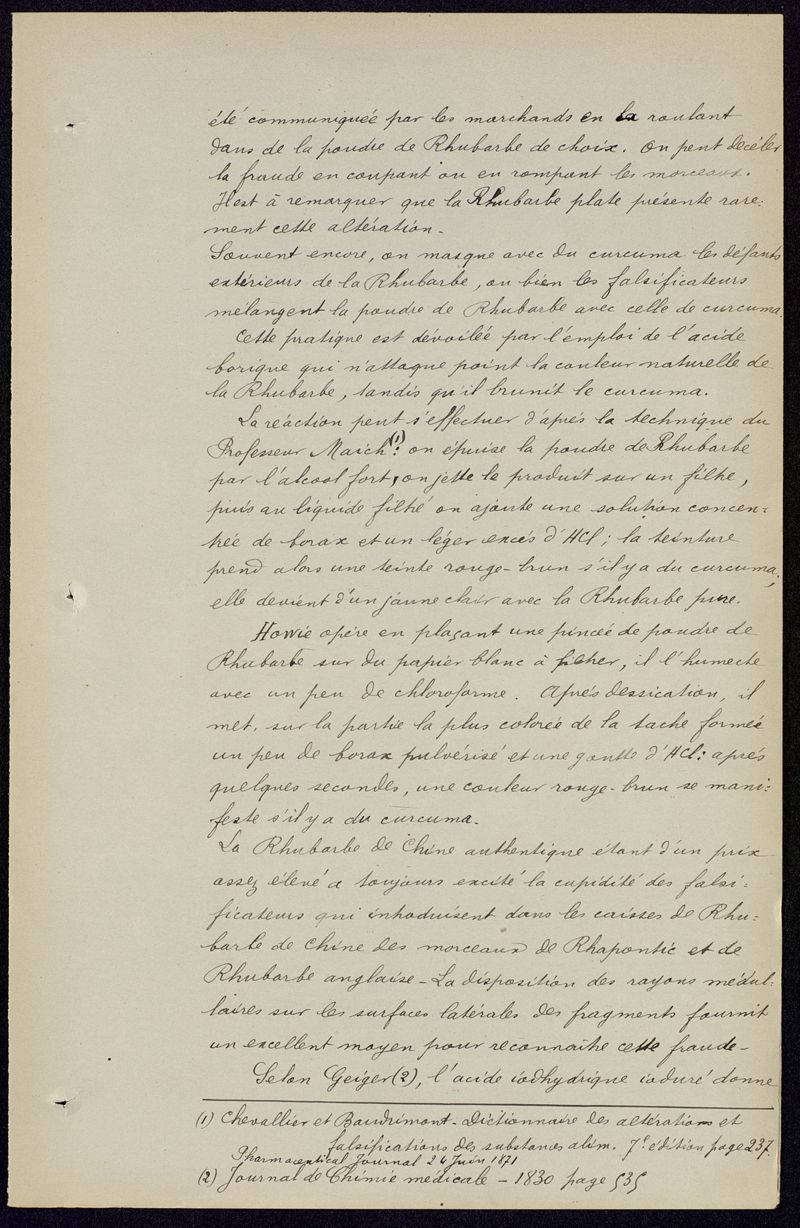 été communiquée par les marchands en la roulant
dans de la poudre de Rhubarbe de choix. On peut décéler
la fraude en coupant ou en rompant les morceaux.
Il est à remarquer que la Rhubarbe plate présente rare=
ment cette altération.
Souvent encore, on masque avec du curcuma les défauts
extérieurs de la Rhubarbe, ou bien les falsificateurs
mélangent la poudre de Rhubarbe avec celle de curcuma.
Cette pratique est dévoilée par l'emploi de l'acide
borique qui n'attaque point la couleur naturelle de
la Rhubarbe, tandis qu'il brunit le curcuma.
La réaction peut s'effectuer d'après la technique du
Professeur Maich (1): on épuise la poudre de Rhubarbe
par l'alcool fort, on jette le produit sur un filtre,
puis au liquide filtré on ajoute une solution concen=
trée de borax et un léger excès d'HCl; la teinture
prend alors une teinte rouge-brun s'il y a du curcuma;
elle devient d'un jaune clair avec la Rhubarbe pure.
Howie opère en plaçant une pincée de poudre de
Rhubarbe sur du papier blanc à filtrer, il l'humecte
avec un peu de chloroforme. Après dessication, il
met, sur la partie la plus colorée de la tache formée
un peu de borax pulvérisé et une goutte d'HCl: après
quelques secondes, une couleur rouge-brun se mani=
feste s'il y a du curcuma.
La Rhubarbe de Chine authentique étant d'un prix
assez élevé a toujours excité la cupidité des falsi=
ficateurs qui introduisent dans les caisses de Rhu=
barbe de Chine des morceaux de Rhapontic et de
Rhubarbe anglaise - La disposition des rayons médul=
laires sur les surfaces latérales des fragments fournit
un excellent moyen pour reconnaître cette fraude -
Selon Geiger (2), l'acide iodhydrique ioduré donne
(1) Chevallier et Baudrimont - Dictionnaire des altérations et
falsifications des substances alim. 7e édition page 237.
Pharmaceutical Journal 24 Juin 1871
(2) Journal de Chimie médicale - 1830 page 535